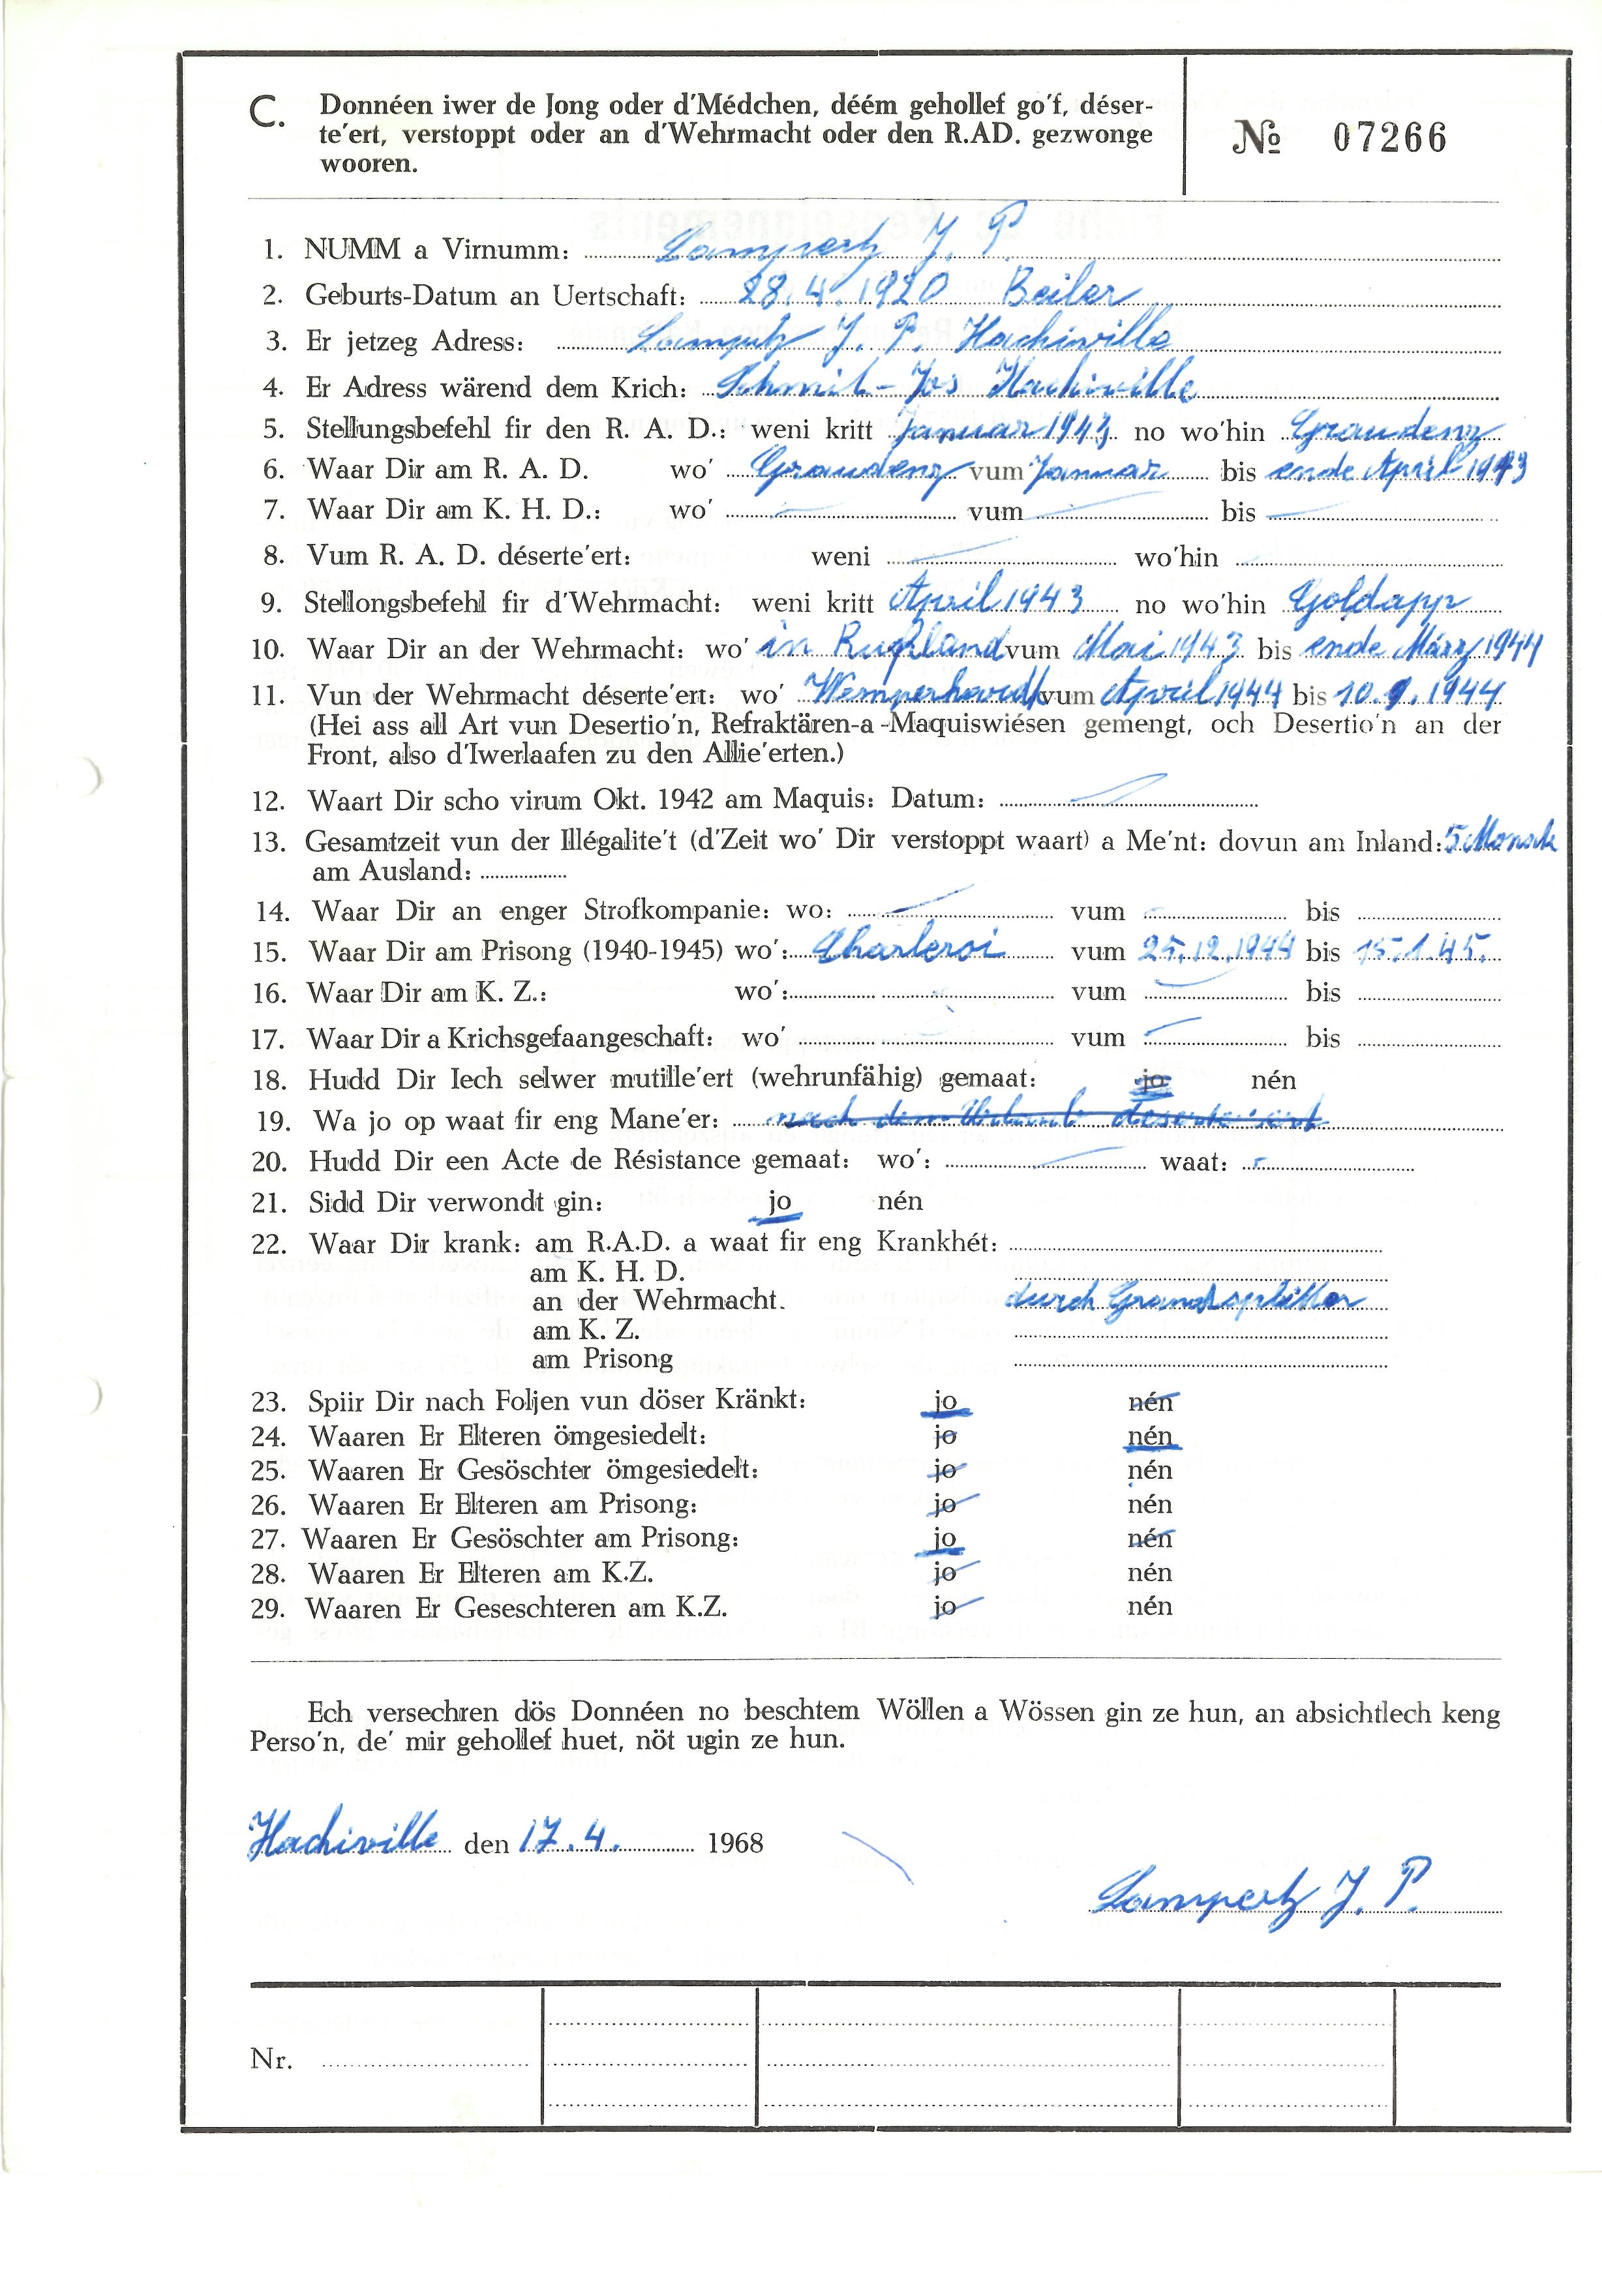 C. Donnéen iwer de Jong oder d'Médchen, déém gehollef go'f, déser-
te'ert, verstoppt oder an d'Wehrmacht oder den R.AD. gezwonge
wooren.
№ 07266
1. NUMM a Virnumm: Lampertz J. P.
2. Geburts-Datum an Uertschaft: 28.4.1920 Beiler
3. Er jetzeg Adress: Lampertz J. P. Hachiville
4. Er Adress wärend dem Krich: Schmit-Jos Hachiville
5. Stellungsbefehl fir den R. A. D.: weni kritt Januar 1943 no wo'hin Graudenz
6. Waar Dir am R. A. D. wo' Graudenz vum Januar bis ende April 1943
7. Waar Dir am K. H. D.: wo' vum bis
8. Vum R. A. D. déserte'ert: weni wo'hin
9. Stellongsbefehl fir d'Wehrmacht: weni kritt April 1943 no wo'hin Goldapp
10. Waar Dir an der Wehrmacht: wo' in Rußland vum Mai 1943 bis ende März 1944
11. Vun der Wehrmacht déserte'ert: wo' Wemperhardt vum April 1944 bis 10.9.1944
(Hei ass all Art vun Desertio'n, Refraktären-a-Maquiswiésen gemengt, och Desertio'n an der
Front, also d'Iwerlaafen zu den Allie'erten.)
12. Waart Dir scho virum Okt. 1942 am Maquis: Datum:
13. Gesamtzeit vun der Illégalite't (d'Zeit wo' Dir verstoppt waart) a Me'nt: dovun am Inland: 5 Monate
am Ausland:
14. Waar Dir an enger Strofkompanie: wo: vum bis
15. Waar Dir am Prisong (1940-1945) wo': Charleroi vum 25.12.1944 bis 15.1.45.
16. Waar Dir am K. Z.: wo': vum bis
17. Waar Dir a Krichsgefaangeschaft: wo' vum bis
18. Hudd Dir Iech selwer mutille'ert (wehrunfähig) gemaat: jo nén
19. Wa jo op waat fir eng Mane'er: nach dem Urlaub deserte'ert
20. Hudd Dir een Acte de Résistance gemaat: wo': waat:
21. Sidd Dir verwondt gin: jo nén
22. Waar Dir krank: am R.A.D. a waat fir eng Krankhét:
am K. H. D.
an der Wehrmacht. durch Granatsplitter
am K. Z.
am Prisong
23. Spiir Dir nach Foljen vun döser Kränkt: jo nén
24. Waaren Er Elteren ömgesiedelt: jo nén
25. Waaren Er Gesöschter ömgesiedelt: jo nén
26. Waaren Er Elteren am Prisong: jo nén
27. Waaren Er Gesöschter am Prisong: jo nén
28. Waaren Er Elteren am K.Z. jo nén
29. Waaren Er Geseschteren am K.Z. jo nén
Ech versechren dös Donnéen no beschtem Wöllen a Wössen gin ze hun, an absichtlech keng
Perso'n, de' mir gehollef huet, nöt ugin ze hun.
Hachiville den 17.4. 1968
Lampertz J. P.
Nr.